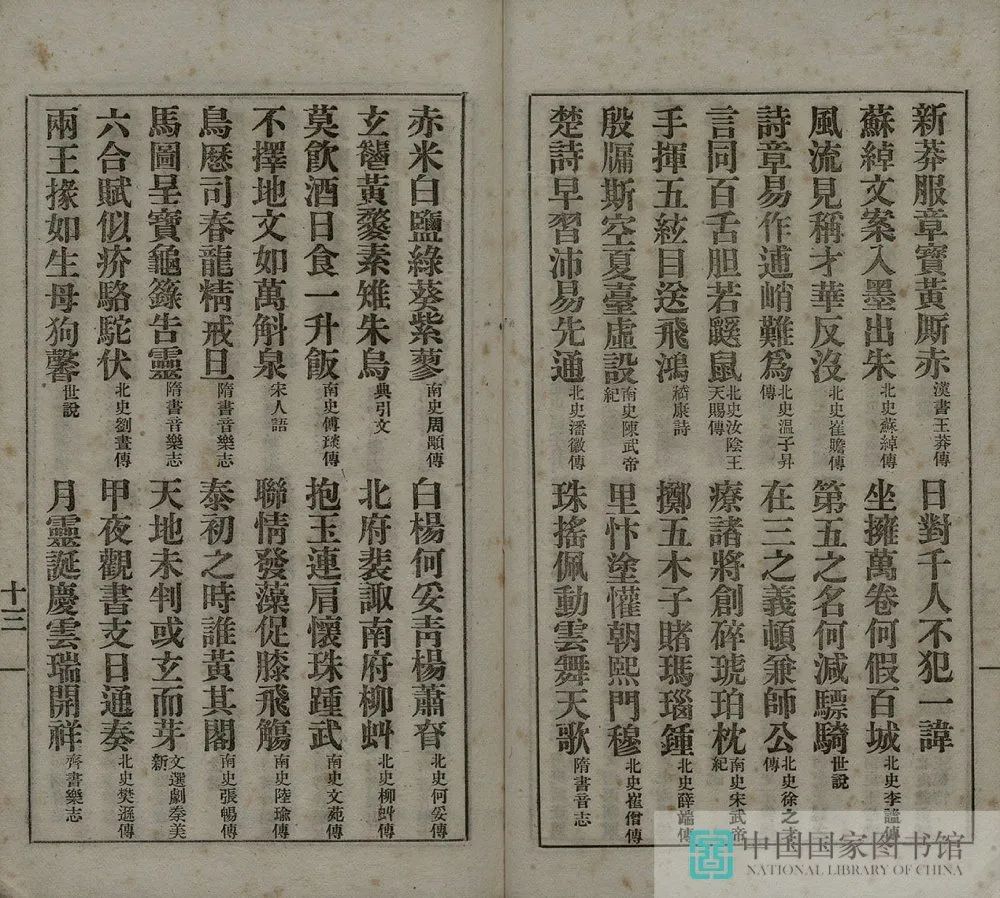 新莽服章寶黃厮赤 漢書王莽傳 日對千人不犯一諱 北史李諡傳
蘇綽文案入墨出朱 北史蘇綽傳 坐擁萬卷何假百城
風流見稱才華反沒 北史崔贍傳 第五之名何減驃騎 世說
詩章易作逋峭難為 北史温子昇傳 在三之義頓兼師公 北史徐之才傳
言同百舌胆若鼷鼠 北史汝陰王天賜傳 療諸將創碎琥珀枕 南史宋武帝紀
手揮五絃目送飛鴻 嵇康詩 擲五木子賭瑪瑙鍾 北史薛端傳
殷牖斯空夏臺虛設 南史陳武帝紀 里忭塗懽朝熙門穆 北史崔僧傳
楚詩早習沛易先通 北史潘徽傳 珠搖佩動雲舞天歌 隋書音志
赤米白鹽綠葵紫蓼 南史周顒傳 白楊何妥青楊蕭眘 北史何妥傳
玄黃黎素雉朱烏 典引文 北府裴諏南府柳虯 北史柳虯傳
莫飲酒日食一升飯 南史傅琰傳 抱玉連肩懷珠踵武 南史文苑傳
不擇地文如萬斛泉 宋人語 聯情發藻促膝飛觴 南史陸瑜傳
鳥歷司春龍精戒旦 隋書音樂志 泰初之時誰黃其閣 南史張暢傳
馬圖呈寶龜籙告靈 隋書音樂志 天地未判或玄而芽 文選劇秦美新
六合賦似疥駱駝伏 北史劉晝傳 甲夜觀書支日通奏 北史樊遜傳
兩王掾如生母狗馨 世說 月靈誕慶雲瑞開祥 齊書樂志
十三
一
中国国家图书馆
NATIONAL LIBRARY OF CHINA